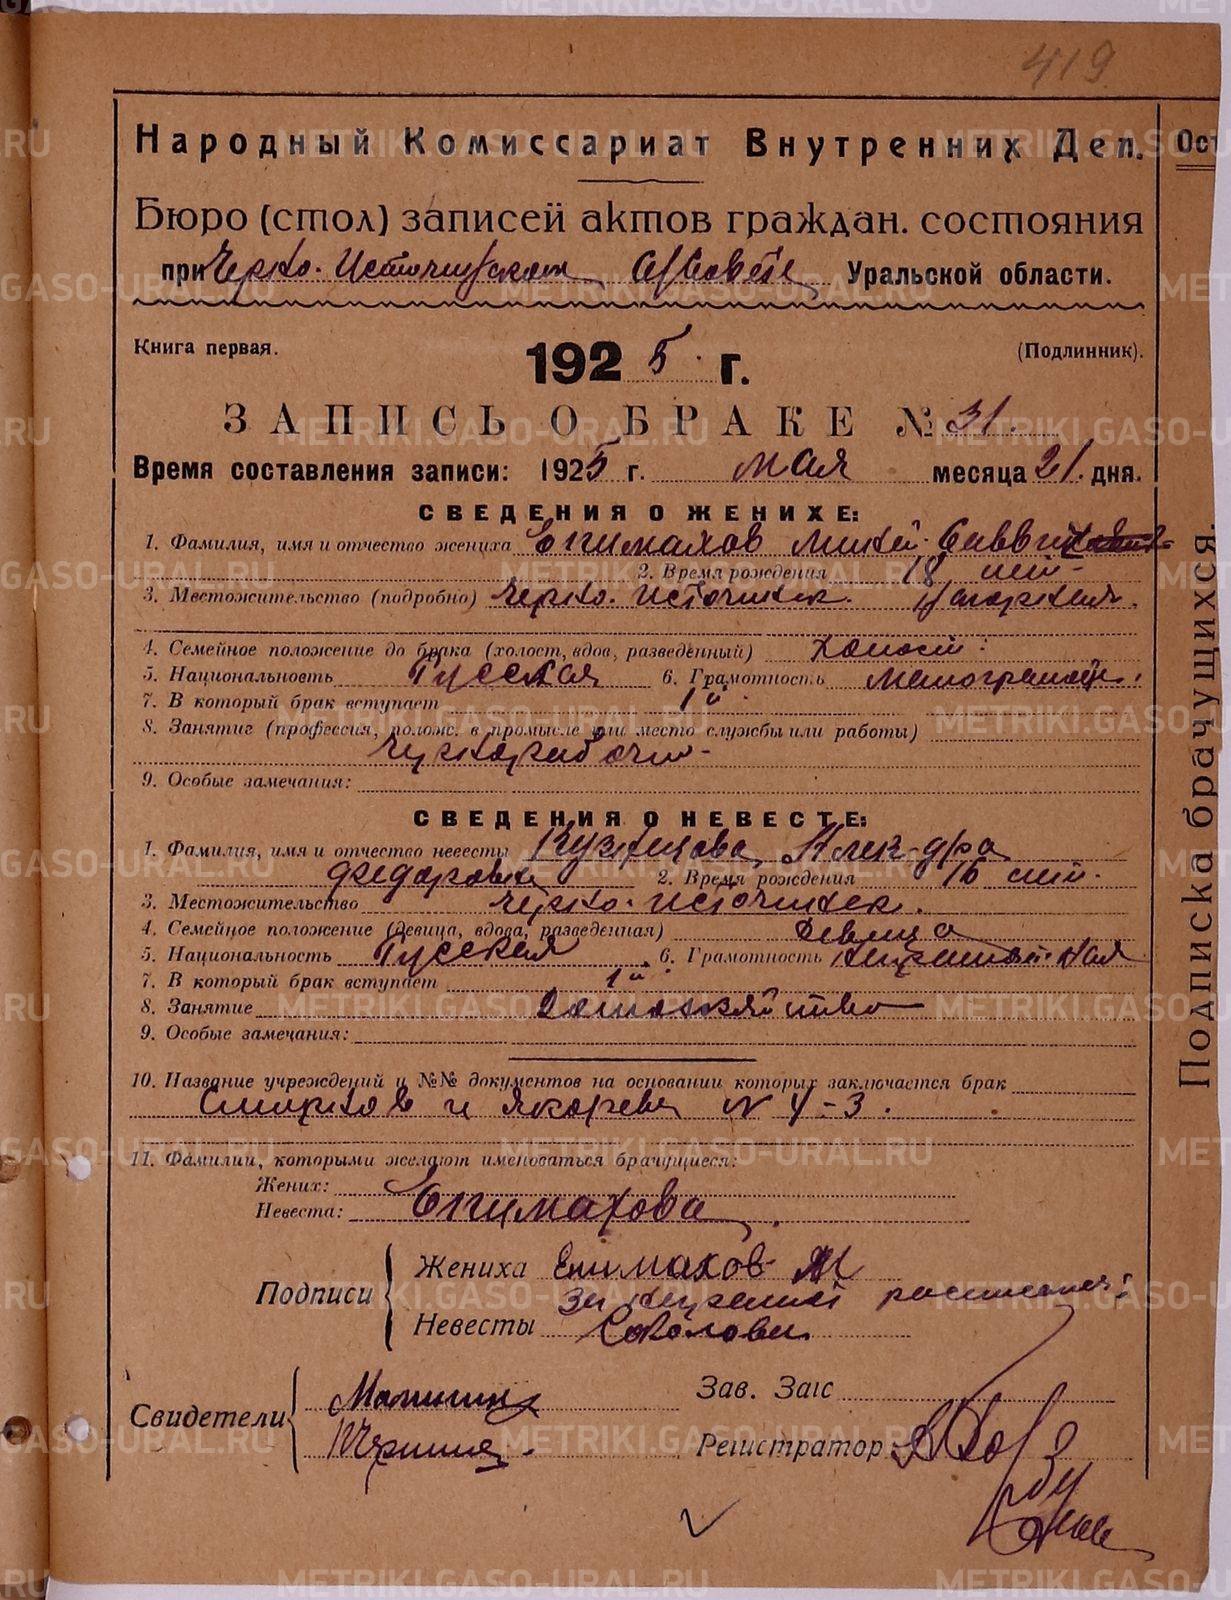 419
Народный Комиссариат Внутренних Дел.
Ост
Бюро (стол) записей актов граждан. состояния
при Черно-Источинском С/Совете Уральской области.
Книга первая. 1925 г. (Подлинник).
ЗАПИСЬ О БРАКЕ № 31.
Время составления записи: 1925 г. мая месяца 21 дня.
СВЕДЕНИЯ О ЖЕНИХЕ:
1. Фамилия, имя и отчество жениха Епимахов Михей Саввич
2. Время рождения 18 лет
3. Местожительство (подробно) Черно-Источинск. Нагорная.
4. Семейное положение до брака (холост, вдов, разведенный) холост.
5. Национальновть Русская 6. Грамотность малограмотн.
7. В который брак вступает 1й
8. Занятиг (профессия, полож. в промысле или место службы или работы)
чернорабочий
9. Особые замечания:
СВЕДЕНИЯ О НЕВЕСТЕ:
1. Фамилия, имя и отчество невесты Кузнецова Алек-дра
Федоровна 2. Время рождения 16 лет.
3. Местожительство Черно-Источинск.
4. Семейное положение (девица, вдова, разведенная) девица
5. Национальность Русская 6. Грамотность неграмотная
7. В который брак вступает 1й
8. Занятие Домохозяйство
9. Особые замечания:
10. Название учреждений и №№ документов на основании которых заключается брак
11. Фамилии, которыми желают именоваться брачущиеся:
Жених:
Невеста: Епимахова
Подписи
Жениха Епимахов М
за неграмот расписался
Невесты Соколова
Свидетели
Зав. Загс
Регистратор
Подписка брачущихся.
METRIKI.GASO-URAL.RU